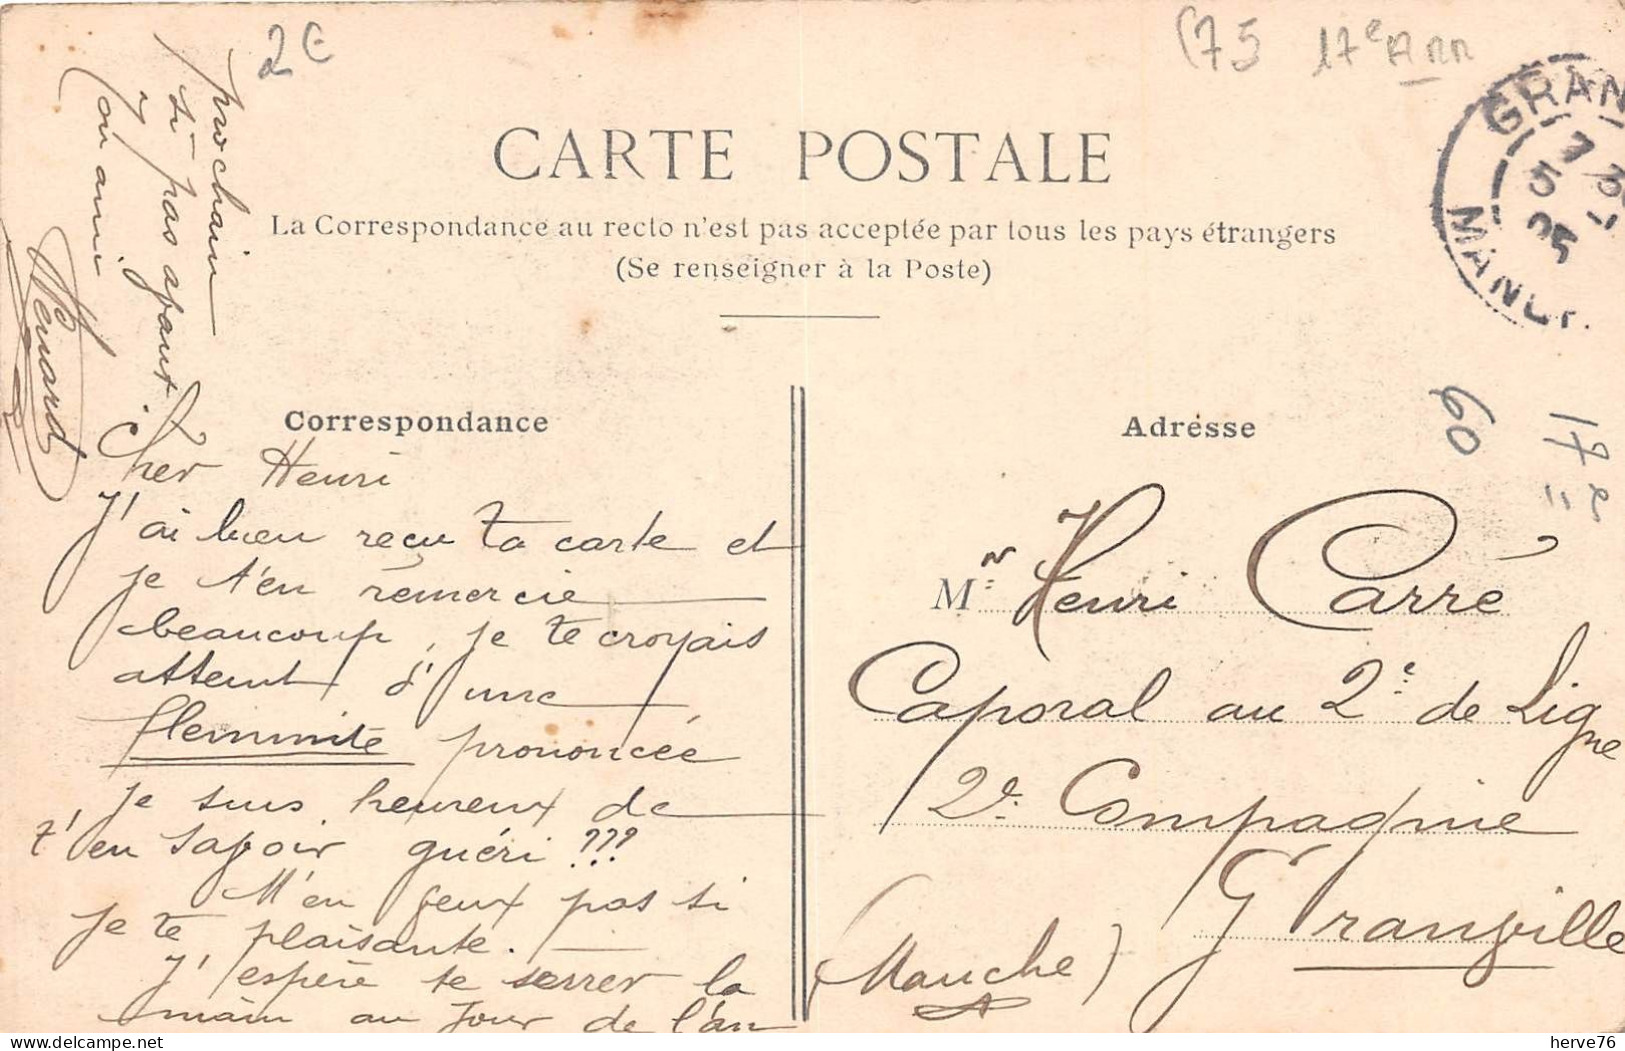 2€
(75 17e Arr
CARTE POSTALE
La Correspondance au recto n'est pas acceptée par tous les pays étrangers
(Se renseigner à la Poste)
GRAN
7
5
05
MANCH
Correspondance
Cher Henri
J'ai bien reçu ta carte et
je t'en remercie
beaucoup, je te croyais
atteint d'une
flemmite prononcée
je suis heureux de
t'en savoir guéri ???
M'en veux pas si
je te plaisante.
J'espère te serrer la
main au jour de l'an
prochain
si pas avant
Ton ami
Adresse
60
17e
Mr Henri Carré
Caporal au 2e de Ligne
2e Compagnie
Granville
(Manche)
herve76